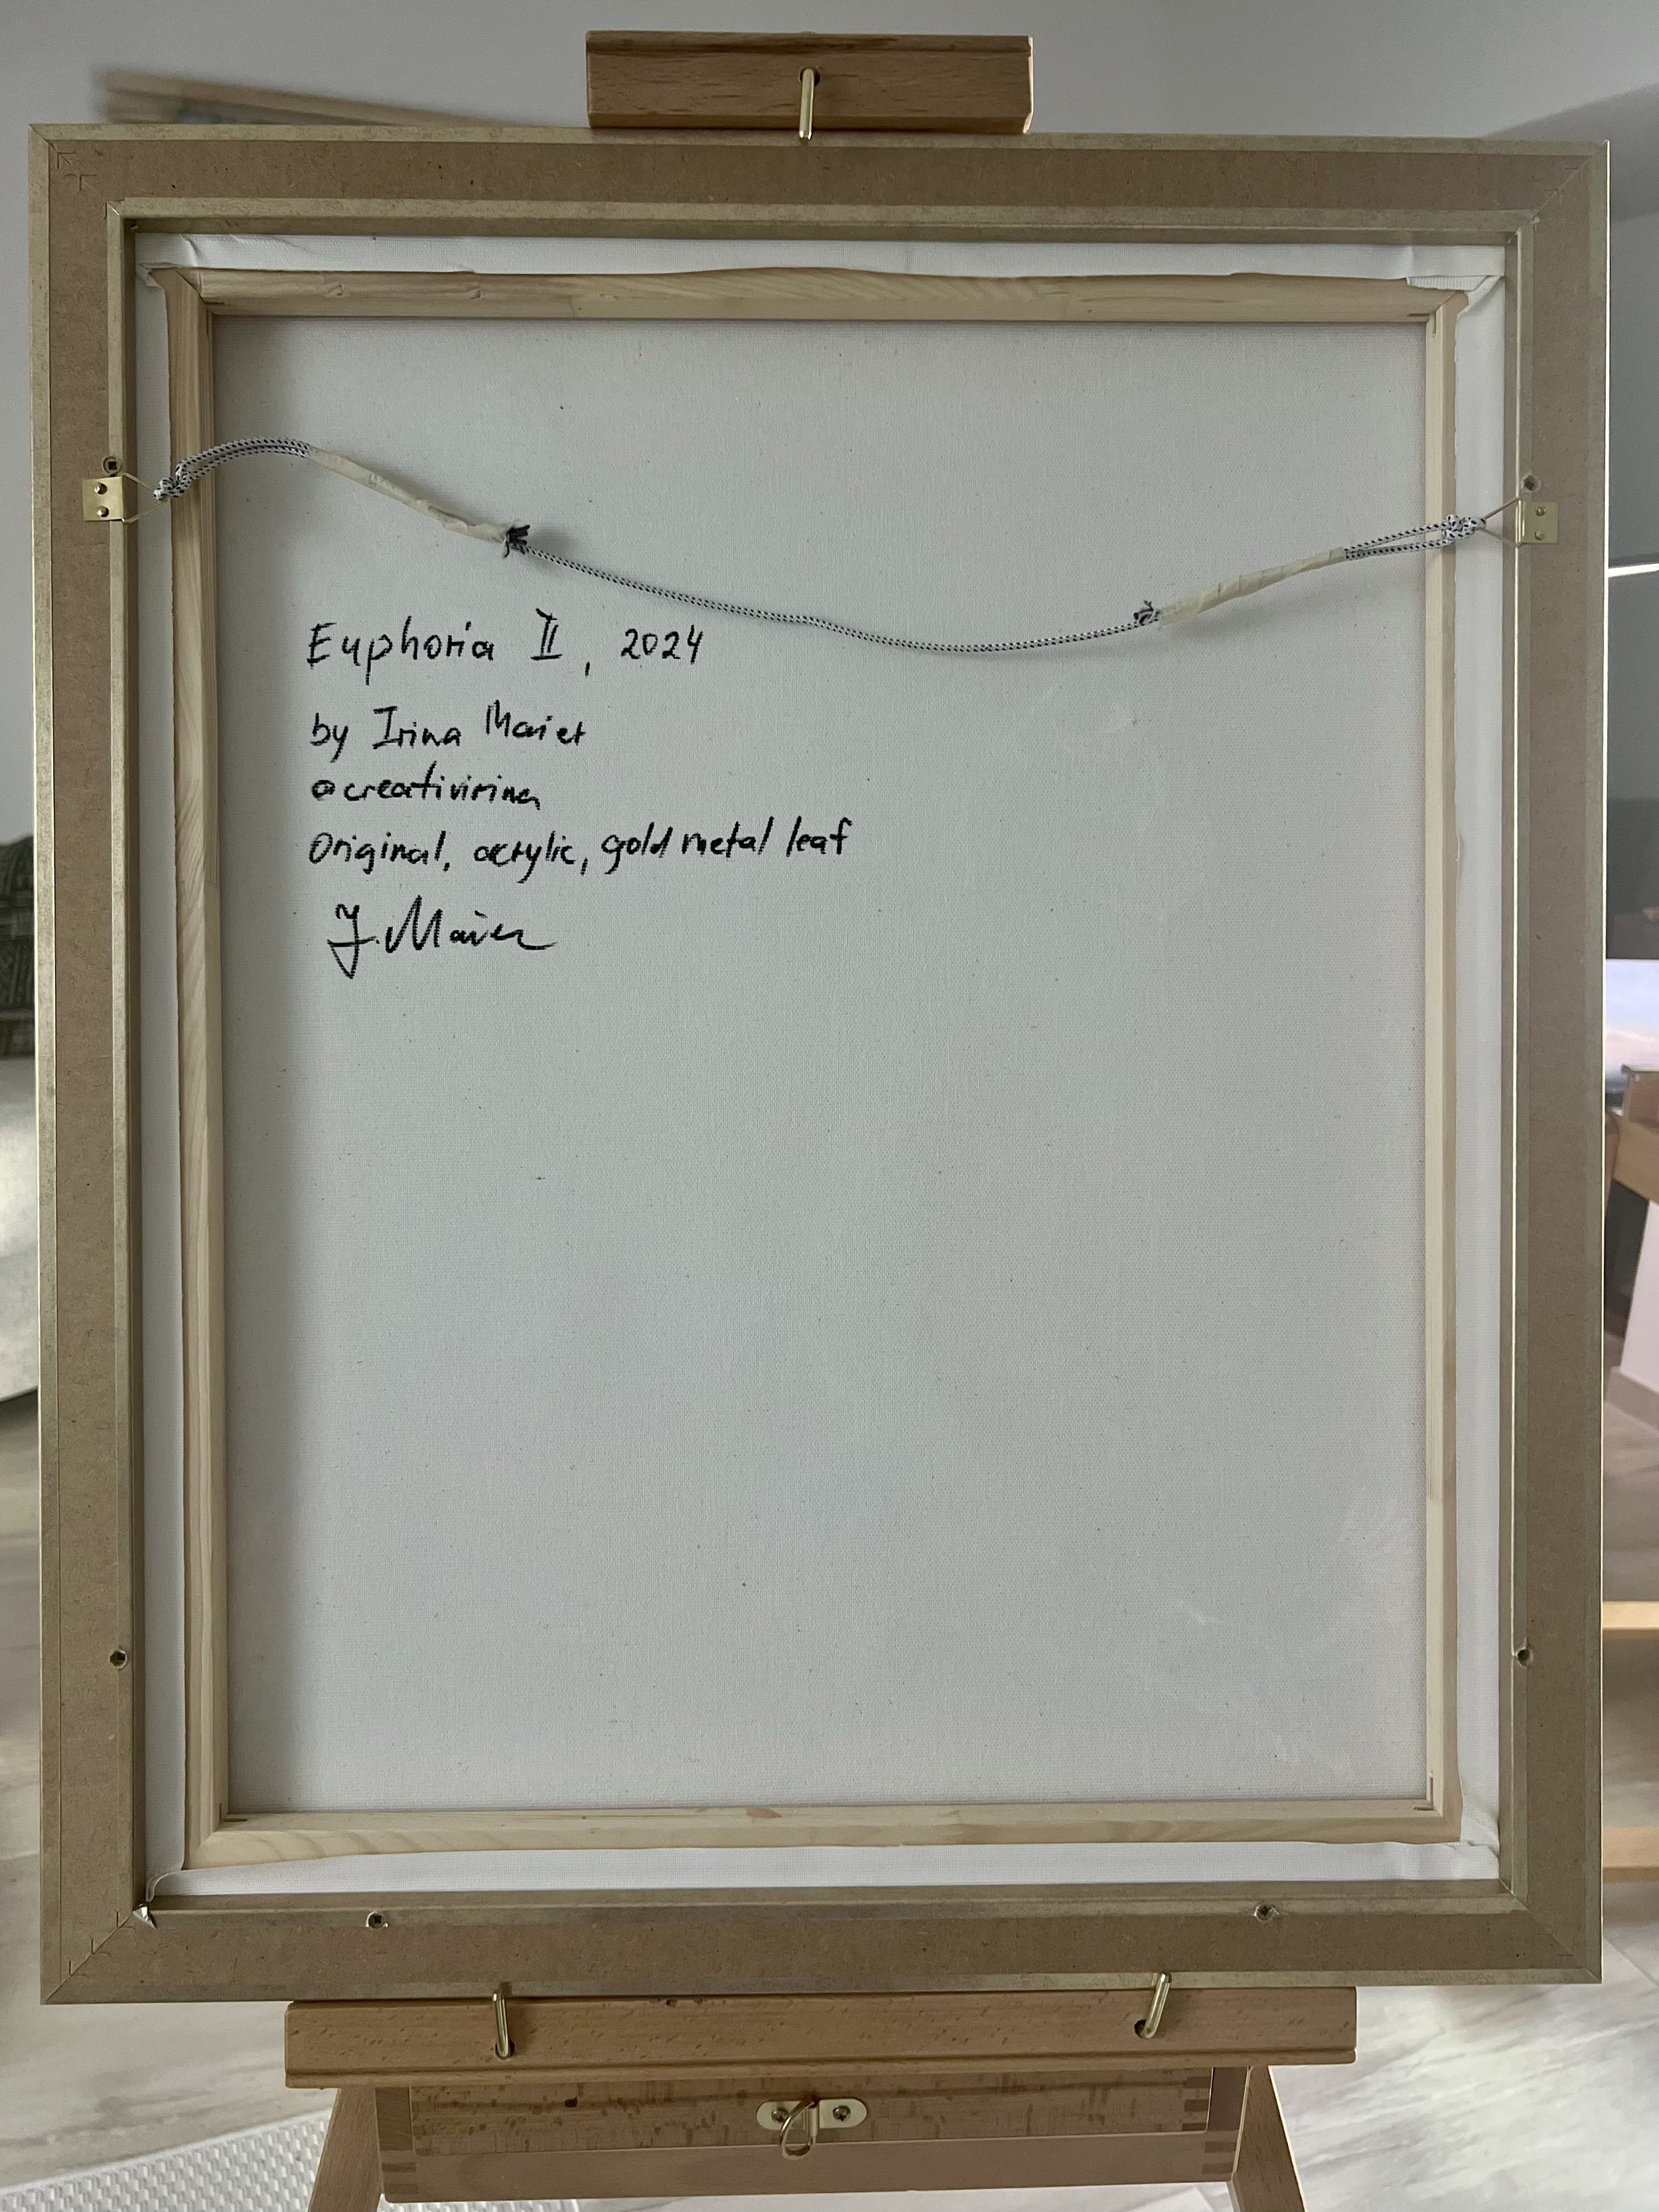 Euphoria II, 2024
by Irina Maier
@creativirina
Original, acrylic, gold metal leaf
J. Maier